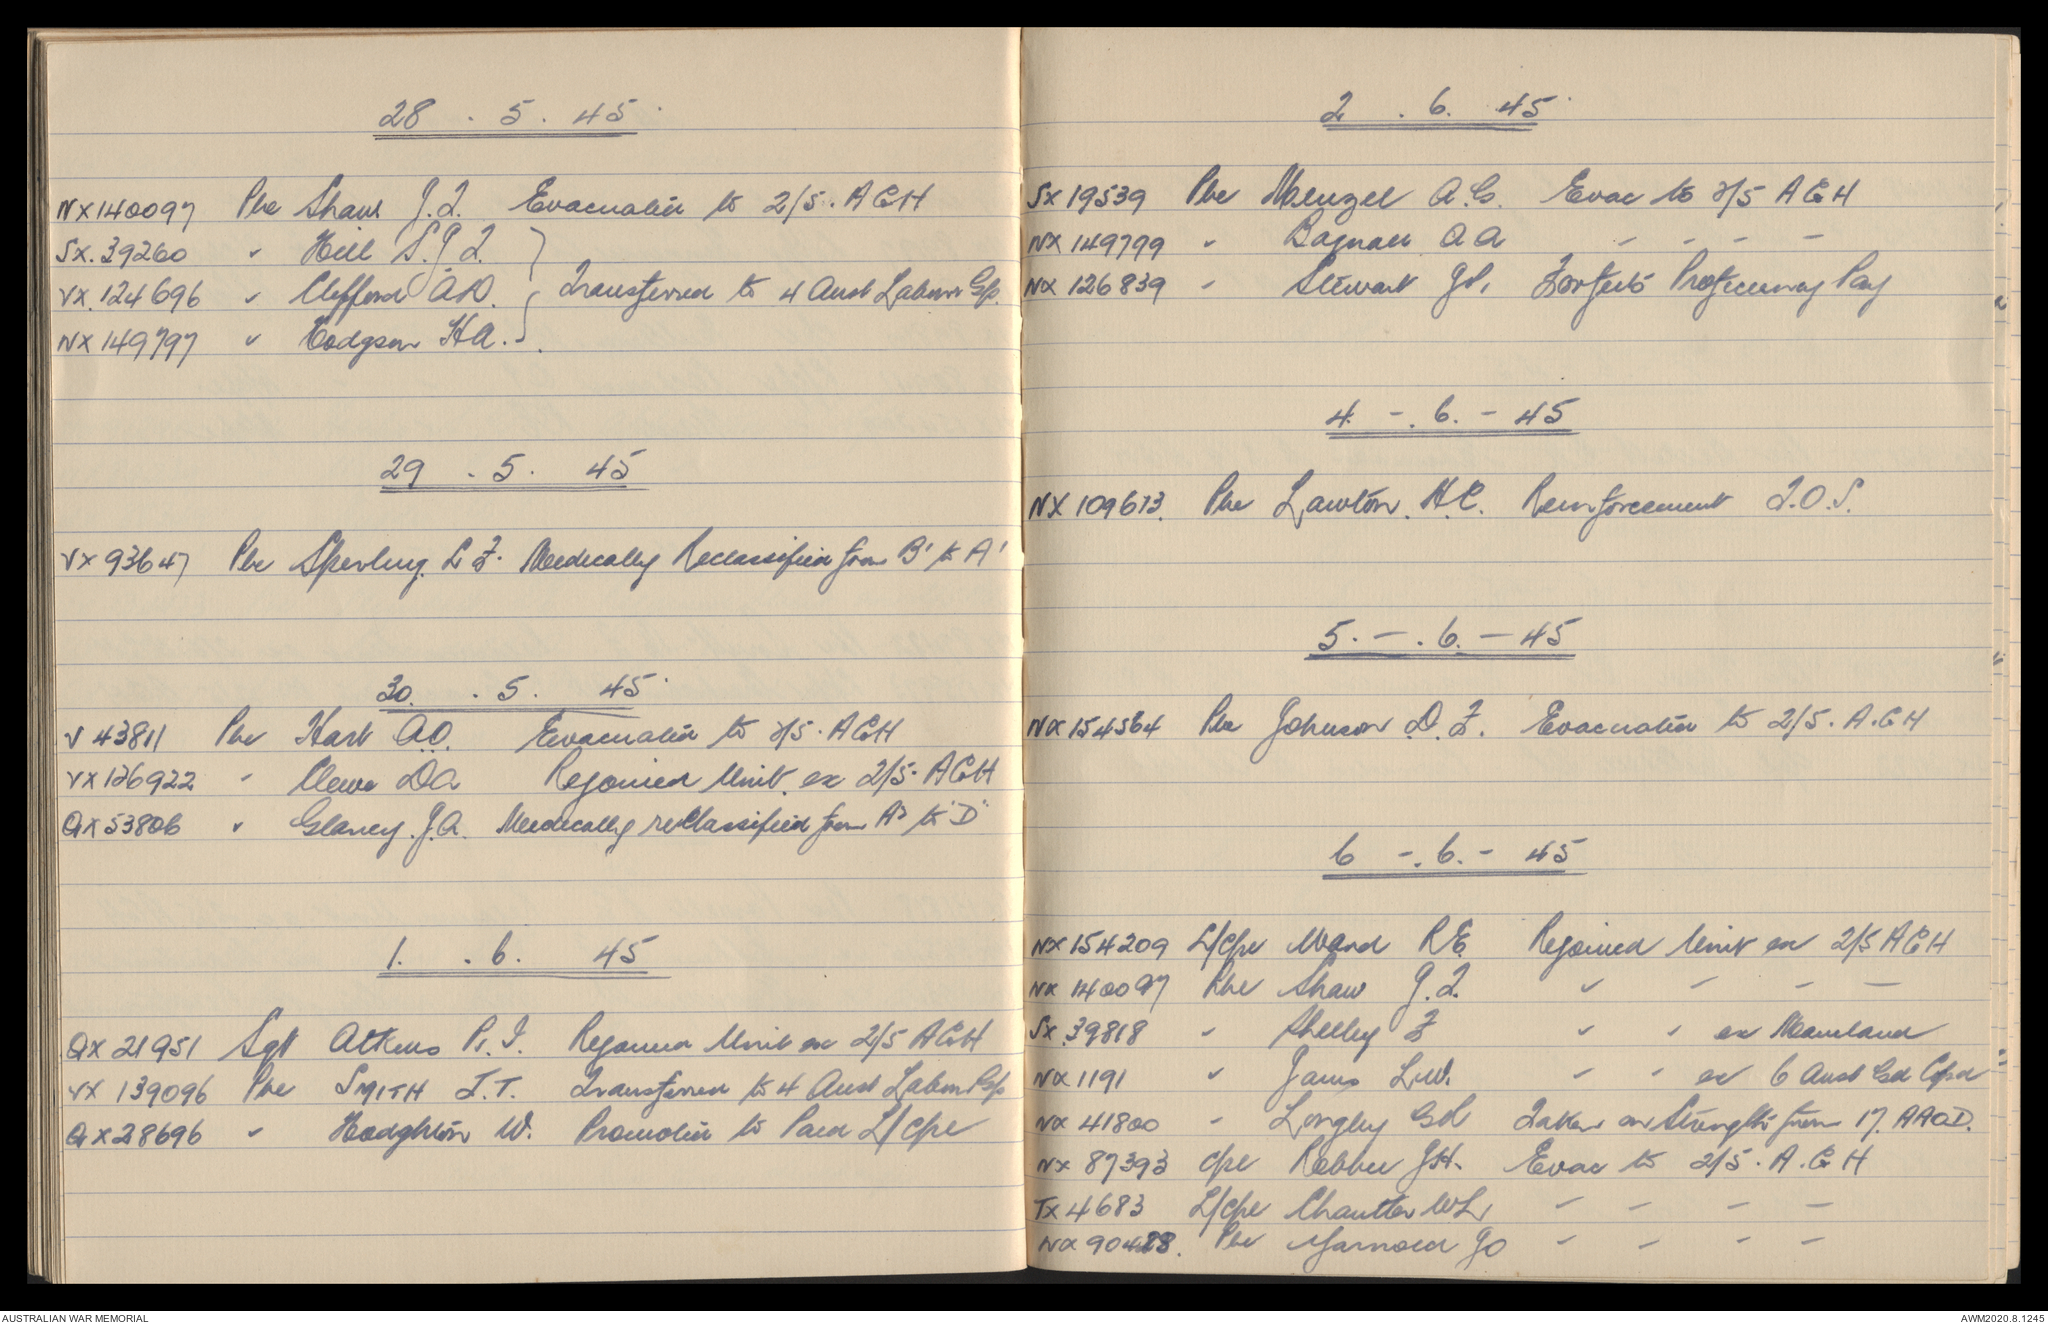 28 . 5 . 45
NX140097 Pte Shaw J.T. Evacuated to 2/5. AGH
SX.39260 " Hill S.J.T.
VX.124696 " Clifford A.D. Transferred to 4 Aust Labour Gp.
NX149797 " Hodgson H.A.
29 . 5 . 45
VX93647 Pte Sperling L F. Medically Reclassified from B' to A'
30. . 5 . 45
V43811 Pte Hart A.O. Evacuated to 2/5. AGH
VX126922 " Clewe D A Rejoined Unit ex 2/5. AGH
QX53806 " Glancy. J.A. Medically reclassified from A2 to "D"
1. . 6. 45
QX21951 Sgt Atkins P. I. Rejoined Unit ex 2/5 AGH
VX139096 Pte SMITH J.T. Transferred to 4 Aust Labour Gp
QX28696 " Hodghton W. Promoted to Paid L/Cpl
2 . 6. 45
SX19539 Pte Menzel A.G. Evac to 2/5 AGH
NX149799 " Bagnall A A - - - -
NX126839 " Stewart J.L. Forfeits Proficiency Pay
4. - . 6. - 45
NX109613. Pte Lawton. H.C. Reinforcement T.O.S.
5. - . 6. - 45
NX154564 Pte Johnson D. F. Evacuated to 2/5. A.G H
6 - . 6. - 45
NX154209 L/Cpl Ward R E. Rejoined Unit ex 2/5 AGH
NX140097 Pte Shaw J.T. " - - -
SX.39818 " Shelley F " " ex Mainland
NX1191 " James L.W. " " ex 6 Aust Gd
NX41800 " Longley G L Taken on Strength from 17. AAOD.
NX87393 Cpl Rebbec J.H. Evac to 2/5. A.G H
TX4683 L/Cpl Chantler W L. - - - -
NX90428. Pte Yarnold J O - - - -
AUSTRALIAN WAR MEMORIAL
AWM2020.8.1245